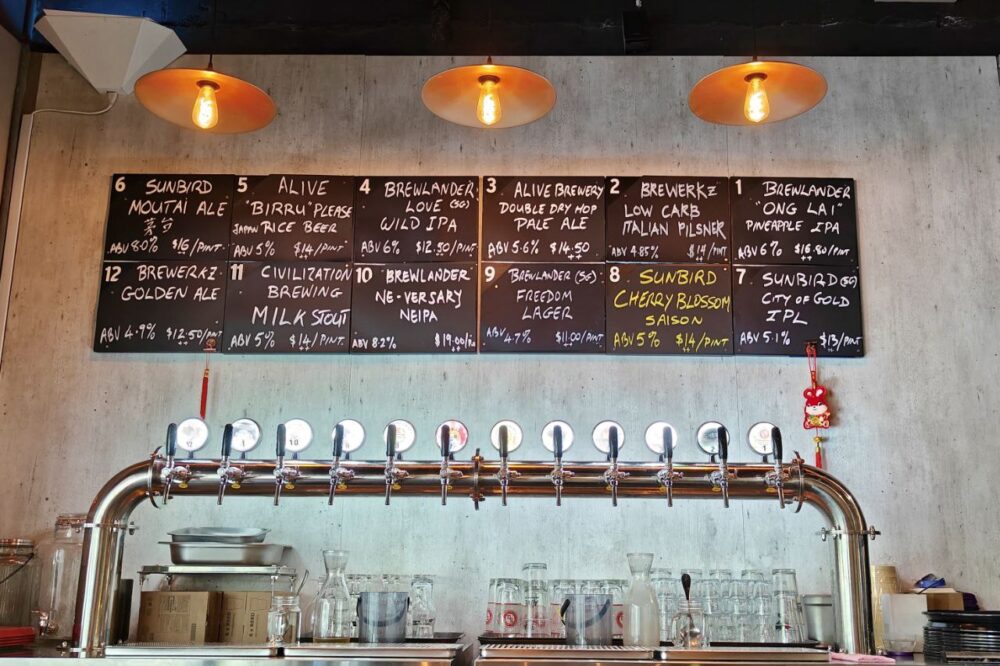 6 SUNBIRD
MOUTAI ALE
ABV 8.0% $16/PINT
5 ALIVE
"BIRRU" PLEASE
JAPAN RICE BEER
ABV 5% $14/PINT
4 BREWLANDER
LOVE (SG)
WILD IPA
ABV 6% $12.50/PINT
3 ALIVE BREWERY
DOUBLE DRY HOP
PALE ALE
ABV 5.6% $14.50
2 BREWERKZ
LOW CARB
ITALIAN PILSNER
ABV 4.85% $14/PINT
1 BREWLANDER
"ONG LAI"
PINEAPPLE IPA
ABV 6% $16.80/PINT
12 BREWERKZ
GOLDEN ALE
ABV 4.9% $12.50/PINT
11 CIVILIZATION
BREWING
MILK STOUT
ABV 5% $14/PINT
10 BREWLANDER
NE-VERSARY
NEIPA
ABV 8.2% $19.00/
9 BREWLANDER (SG)
FREEDOM
LAGER
ABV 4.7% $11.00/PINT
8 SUNBIRD
CHERRY BLOSSOM
SAISON
ABV 5% $14/PINT
7 SUNBIRD (SG)
CITY OF GOLD
IPL
ABV 5.1% $13/PINT
12
10
1